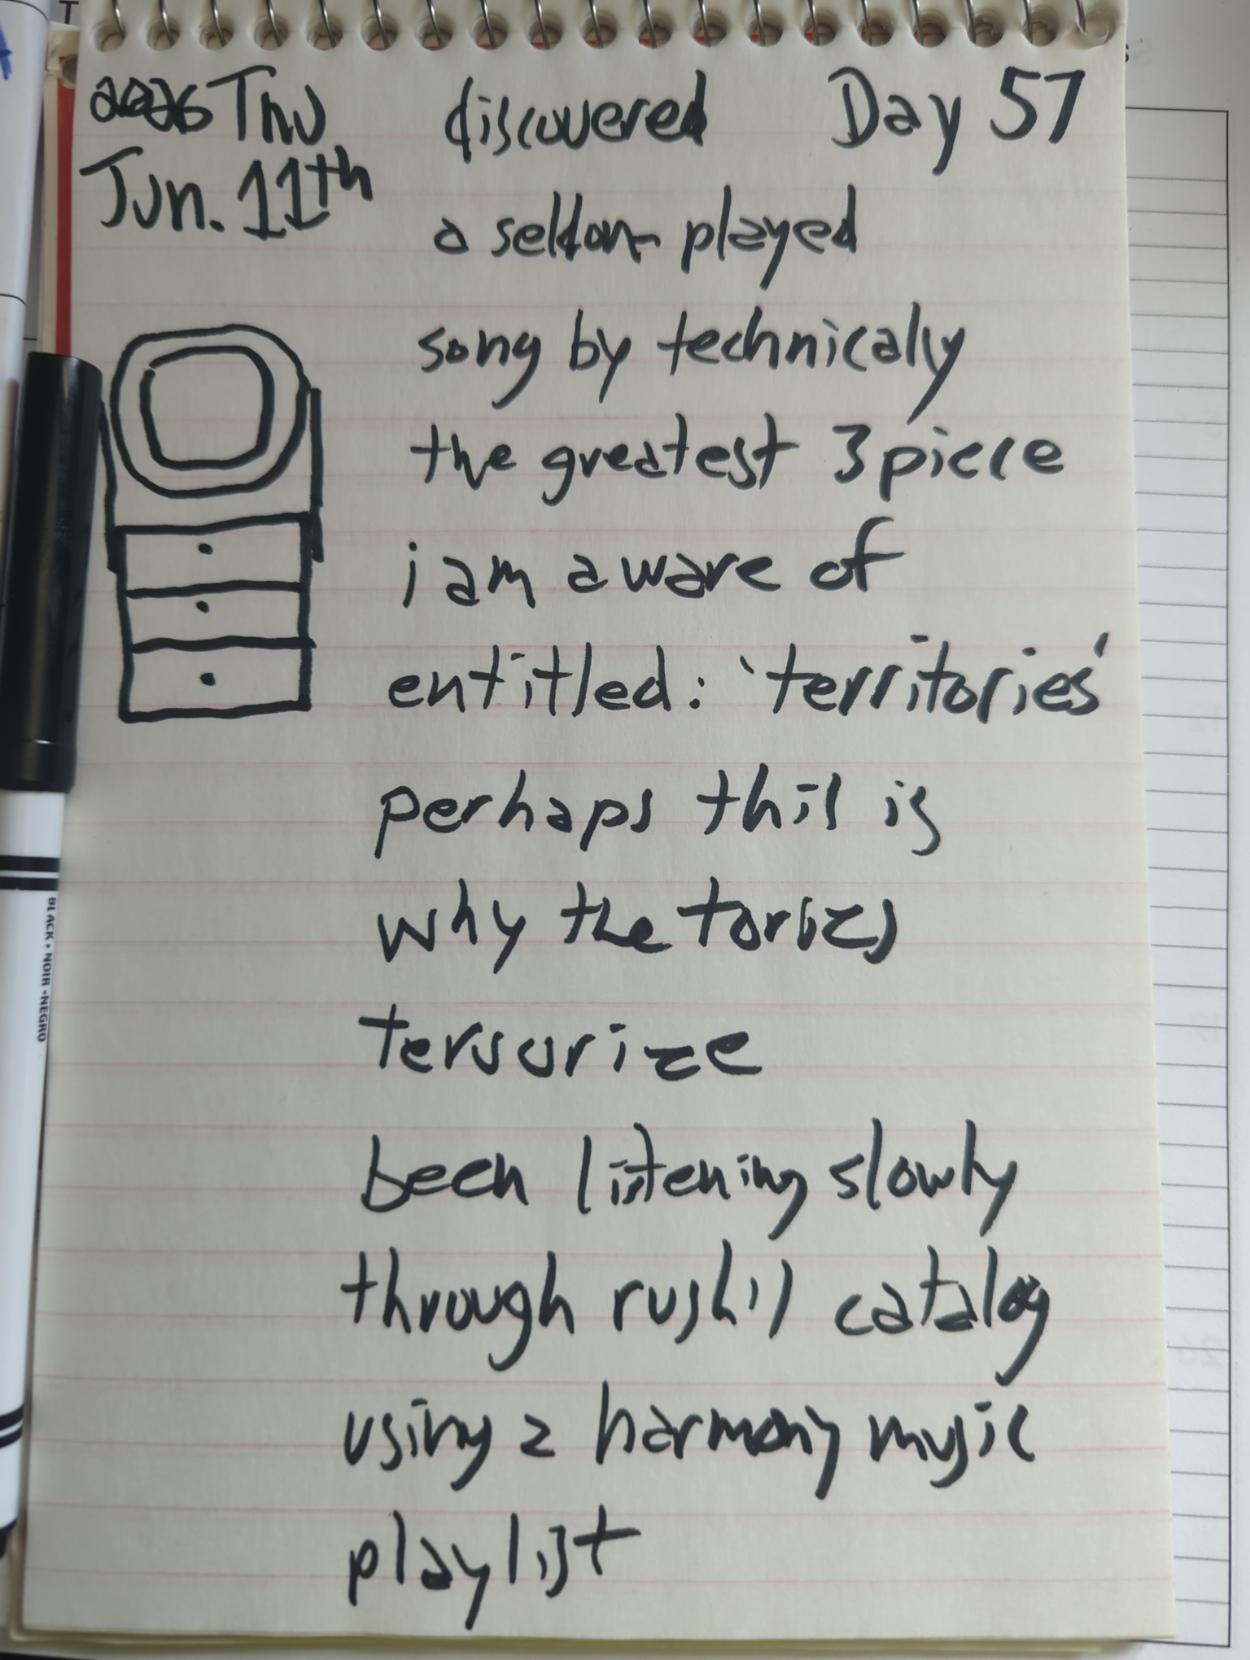 2026 Thu
Jun. 11th
discovered
Day 57
a seldom played
song by technicaly
the greatest 3 piece
i am aware of
entitled: 'territories'
perhaps this is
why the tories
terrorize
been listening slowly
through rush's catalog
using a harmony music
playlist
BLACK • NOIR • NEGRO